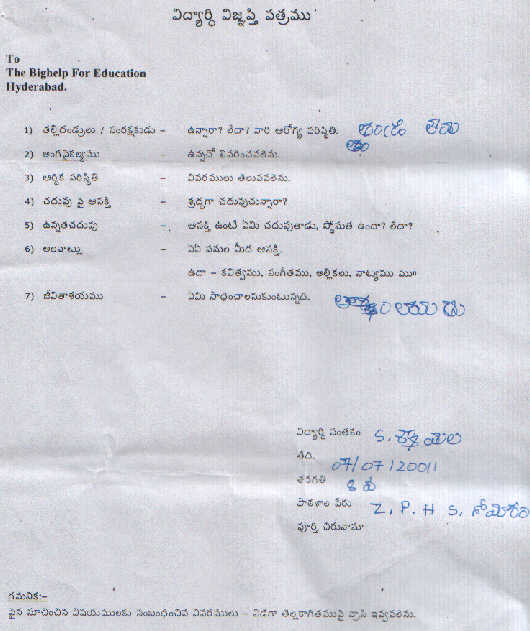 విద్యార్థి విజ్ఞప్తి పత్రము
To
The Bighelp For Education
Hyderabad.
1) తల్లిదండ్రులు / సంరక్షకుడు – ఉన్నారా? లేదా? వారి ఆరోగ్య పరిస్థితి.
2) అంగవైకల్యము – ఉన్నచో వివరించవలెను.
3) ఆర్థిక పరిస్థితి – వివరములు తెలుపవలెను.
4) చదువు పై ఆసక్తి – శ్రద్ధగా చదువుచున్నారా?
5) ఉన్నతచదువు – ఆసక్తి ఉంటే ఏమి చదువుతాడు, స్తోమత ఉందా? లేదా?
6) అలవాట్లు – ఏఏ పనుల మీద ఆసక్తి.
ఉదా – కవిత్వము, సంగీతము, అల్లికలు, నాట్యము ము॥
7) జీవితాశయము – ఏమి సాధించాలనుకుంటున్నది.
విద్యార్థి సంతకం S.
తేది. 07/07/20011
తరగతి 8
పాఠశాల పేరు Z. P. H S,
పూర్తి చిరునామా
గమనిక:–
పైన సూచించిన విషయములకు సంబంధించిన వివరములు – విడిగా తెల్లకాగితముపై వ్రాసి ఇవ్వవలెను.